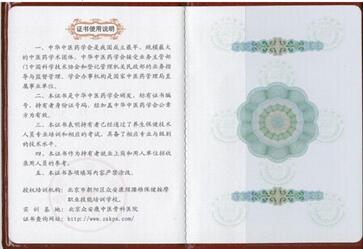 证书使用说明
一、中华中医药学会是我国成立最早、规模最大
的中医药学术团体。中华中医药学会接受业务主管部
门中国科学技术协会和登记管理机关民政部的业务指
导与监督管理。学会办事机构是国家中医药管理局直
属事业单位。
二、本证书是中华中医药学会颁发，标有证书编
号、持有者身份证号码，经加盖中华中医药学会公章
方为有效。
三、本证书表明持有者已经通过了养生保健技术
人员专业培训和相应的考试，具备了相应专业与级别
的技术水平。
四、本证书作为持有者就业上岗和用人单位招收
录用人员的参考。
五、本证书各项填写内容严禁涂改。
授权培训机构：北京市朝阳区众安康颈腰椎保健按摩
职业技能培训学校。
实训基地：北京众安康中医骨科医院
证书查询网站：http://www.zakpx.com/